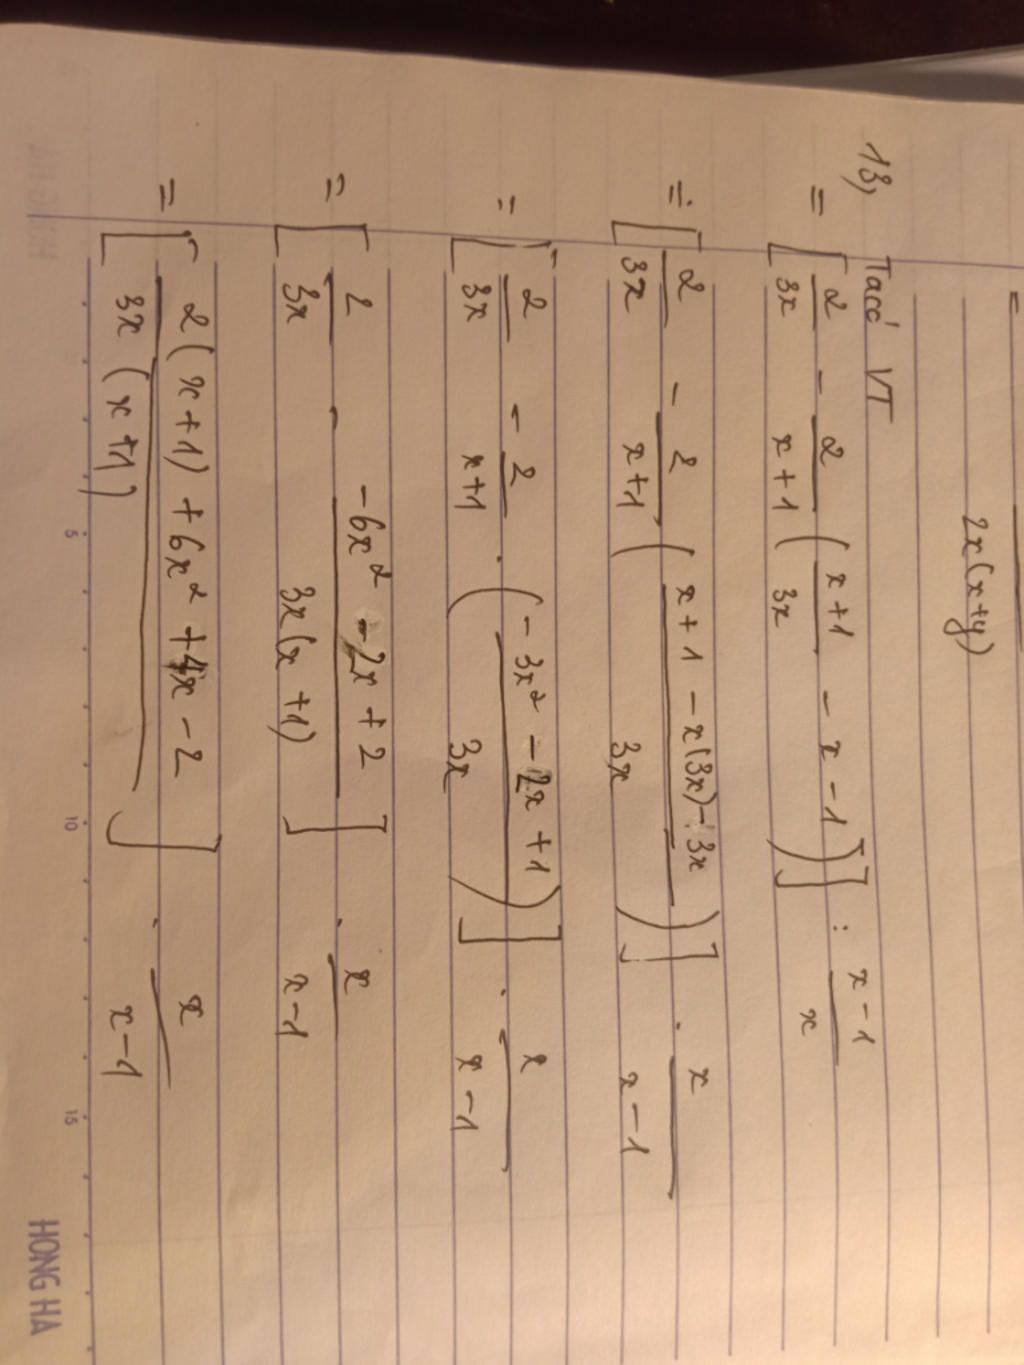 =
2x(x+y)
13, Ta có VT
= [ 2/3x - 2/x+1 ( x+1/3x - x - 1 ) ] : x-1/x
= [ 2/3x - 2/x+1 . ( x+1-x(3x)-3x/3x ) ] . x/x-1
= [ 2/3x - 2/x+1 . ( -3x² - 2x + 1/3x ) ] . x/x-1
= [ 2/3x - -6x² - 2x + 2/3x(x+1) ] . x/x-1
= [ 2(x+1) + 6x² + 4x - 2/3x(x+1) ] . x/x-1
5 10 15
HONG HA